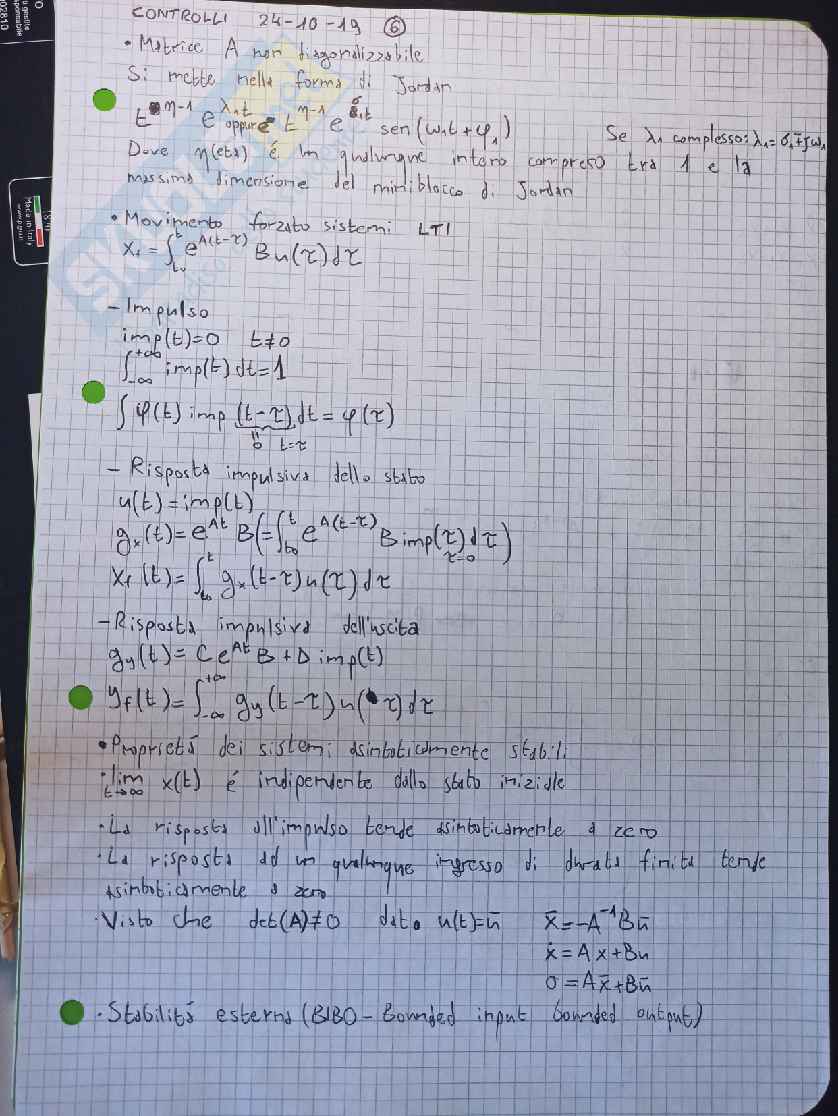 CONTROLLI 24-10-19 ⑥
• Matrice A non diagonalizzabile
Si mette nella forma di Jordan
t^(η-1) e^(λ₁t) oppure t^(η-1) e^(σ₁t) sen(ω₁t+φ₁) Se λ₁ complesso: λ₁=σ₁+jω₁
Dove η(eta) é un qualunque intero compreso tra 1 e la
massima dimensione del miniblocco di Jordan
• Movimento forzato sistemi LTI
x_f = ∫_{t₀}^{t} e^{A(t-τ)} Bu(τ)dτ
- Impulso
imp(t)=0 t≠0
∫_{-∞}^{+∞} imp(t)dt=1
∫ φ(t) imp (t-τ)dt = φ(τ)
"0 t=τ
- Risposta impulsiva dello stato
u(t)=imp(t)
g_x(t)=e^{At} B(=∫_{t₀}^{t} e^{A(t-τ)} B imp(τ)dτ)
τ=0
x_f(t)=∫_{t₀}^{t} g_x(t-τ)u(τ)dτ
- Risposta impulsiva dell'uscita
g_y(t)=Ce^{At}B+D imp(t)
y_f(t)=∫_{-∞}^{+∞} g_y(t-τ)u(τ)dτ
• Proprietá dei sistemi asintoticamente stabili
· lim_{t→∞} x(t) é indipendente dallo stato iniziale
· La risposta all'impulso tende asintoticamente a zero
· La risposta ad un qualunque ingresso di durata finita tende
asintoticamente a zero
· Visto che det(A)≠0 dato u(t)=ū x̄=-A⁻¹Bū
ẋ=Ax+Bu
0=Ax̄+Bū
· Stabilitá esterna (BIBO - Bounded input bounded output)
Made in Italy